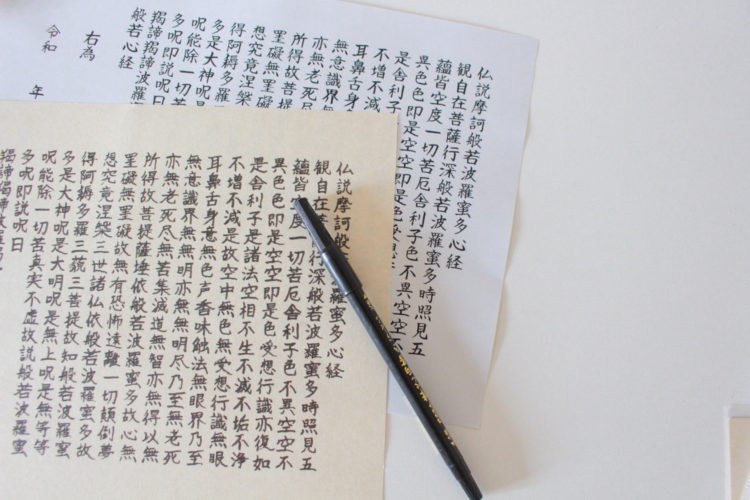 仏説摩訶般若波羅蜜多心経
観自在菩薩行深般若波羅蜜多時照見五
蘊皆空度一切苦厄舎利子色不異空空不
異色色即是空空即是色受想
是舎利子
不増不減
耳鼻舌身
無意識界無
亦無老死尽
所得故菩提
罣礙無罣礙
想究竟涅槃
得阿耨多羅
多是大神呪是
呪能除一切苦
多呪即説呪日
羯諦羯諦波羅
般若心経
右為
令和 年
仏説摩訶般 羅蜜多心経
観自在菩 行深般若波羅蜜多時照見五
蘊皆空度一切苦厄舎利子色不異空空不
異色色即是空空即是色受想行識亦復如
是舎利子是諸法空相不生不滅不垢不浄
不増不減是故空中無色無受想行識無眼
耳鼻舌身意無色声香味触法無眼界乃至
無意識界無無明亦無無明尽乃至無老死
亦無老死尽無苦集滅道無智亦無得以無
所得故菩提薩埵依般若波羅蜜多故心無
罣礙無罣礙故無有恐怖遠離一切顛倒夢
想究竟涅槃三世諸仏依般若波羅蜜多故
得阿耨多羅三藐三菩提故知般若波羅蜜
多是大神呪是大明呪是無上呪是無等等
呪能除一切苦真実不虚故説般若波羅蜜
多呪即説呪日
羯諦羯諦波羅